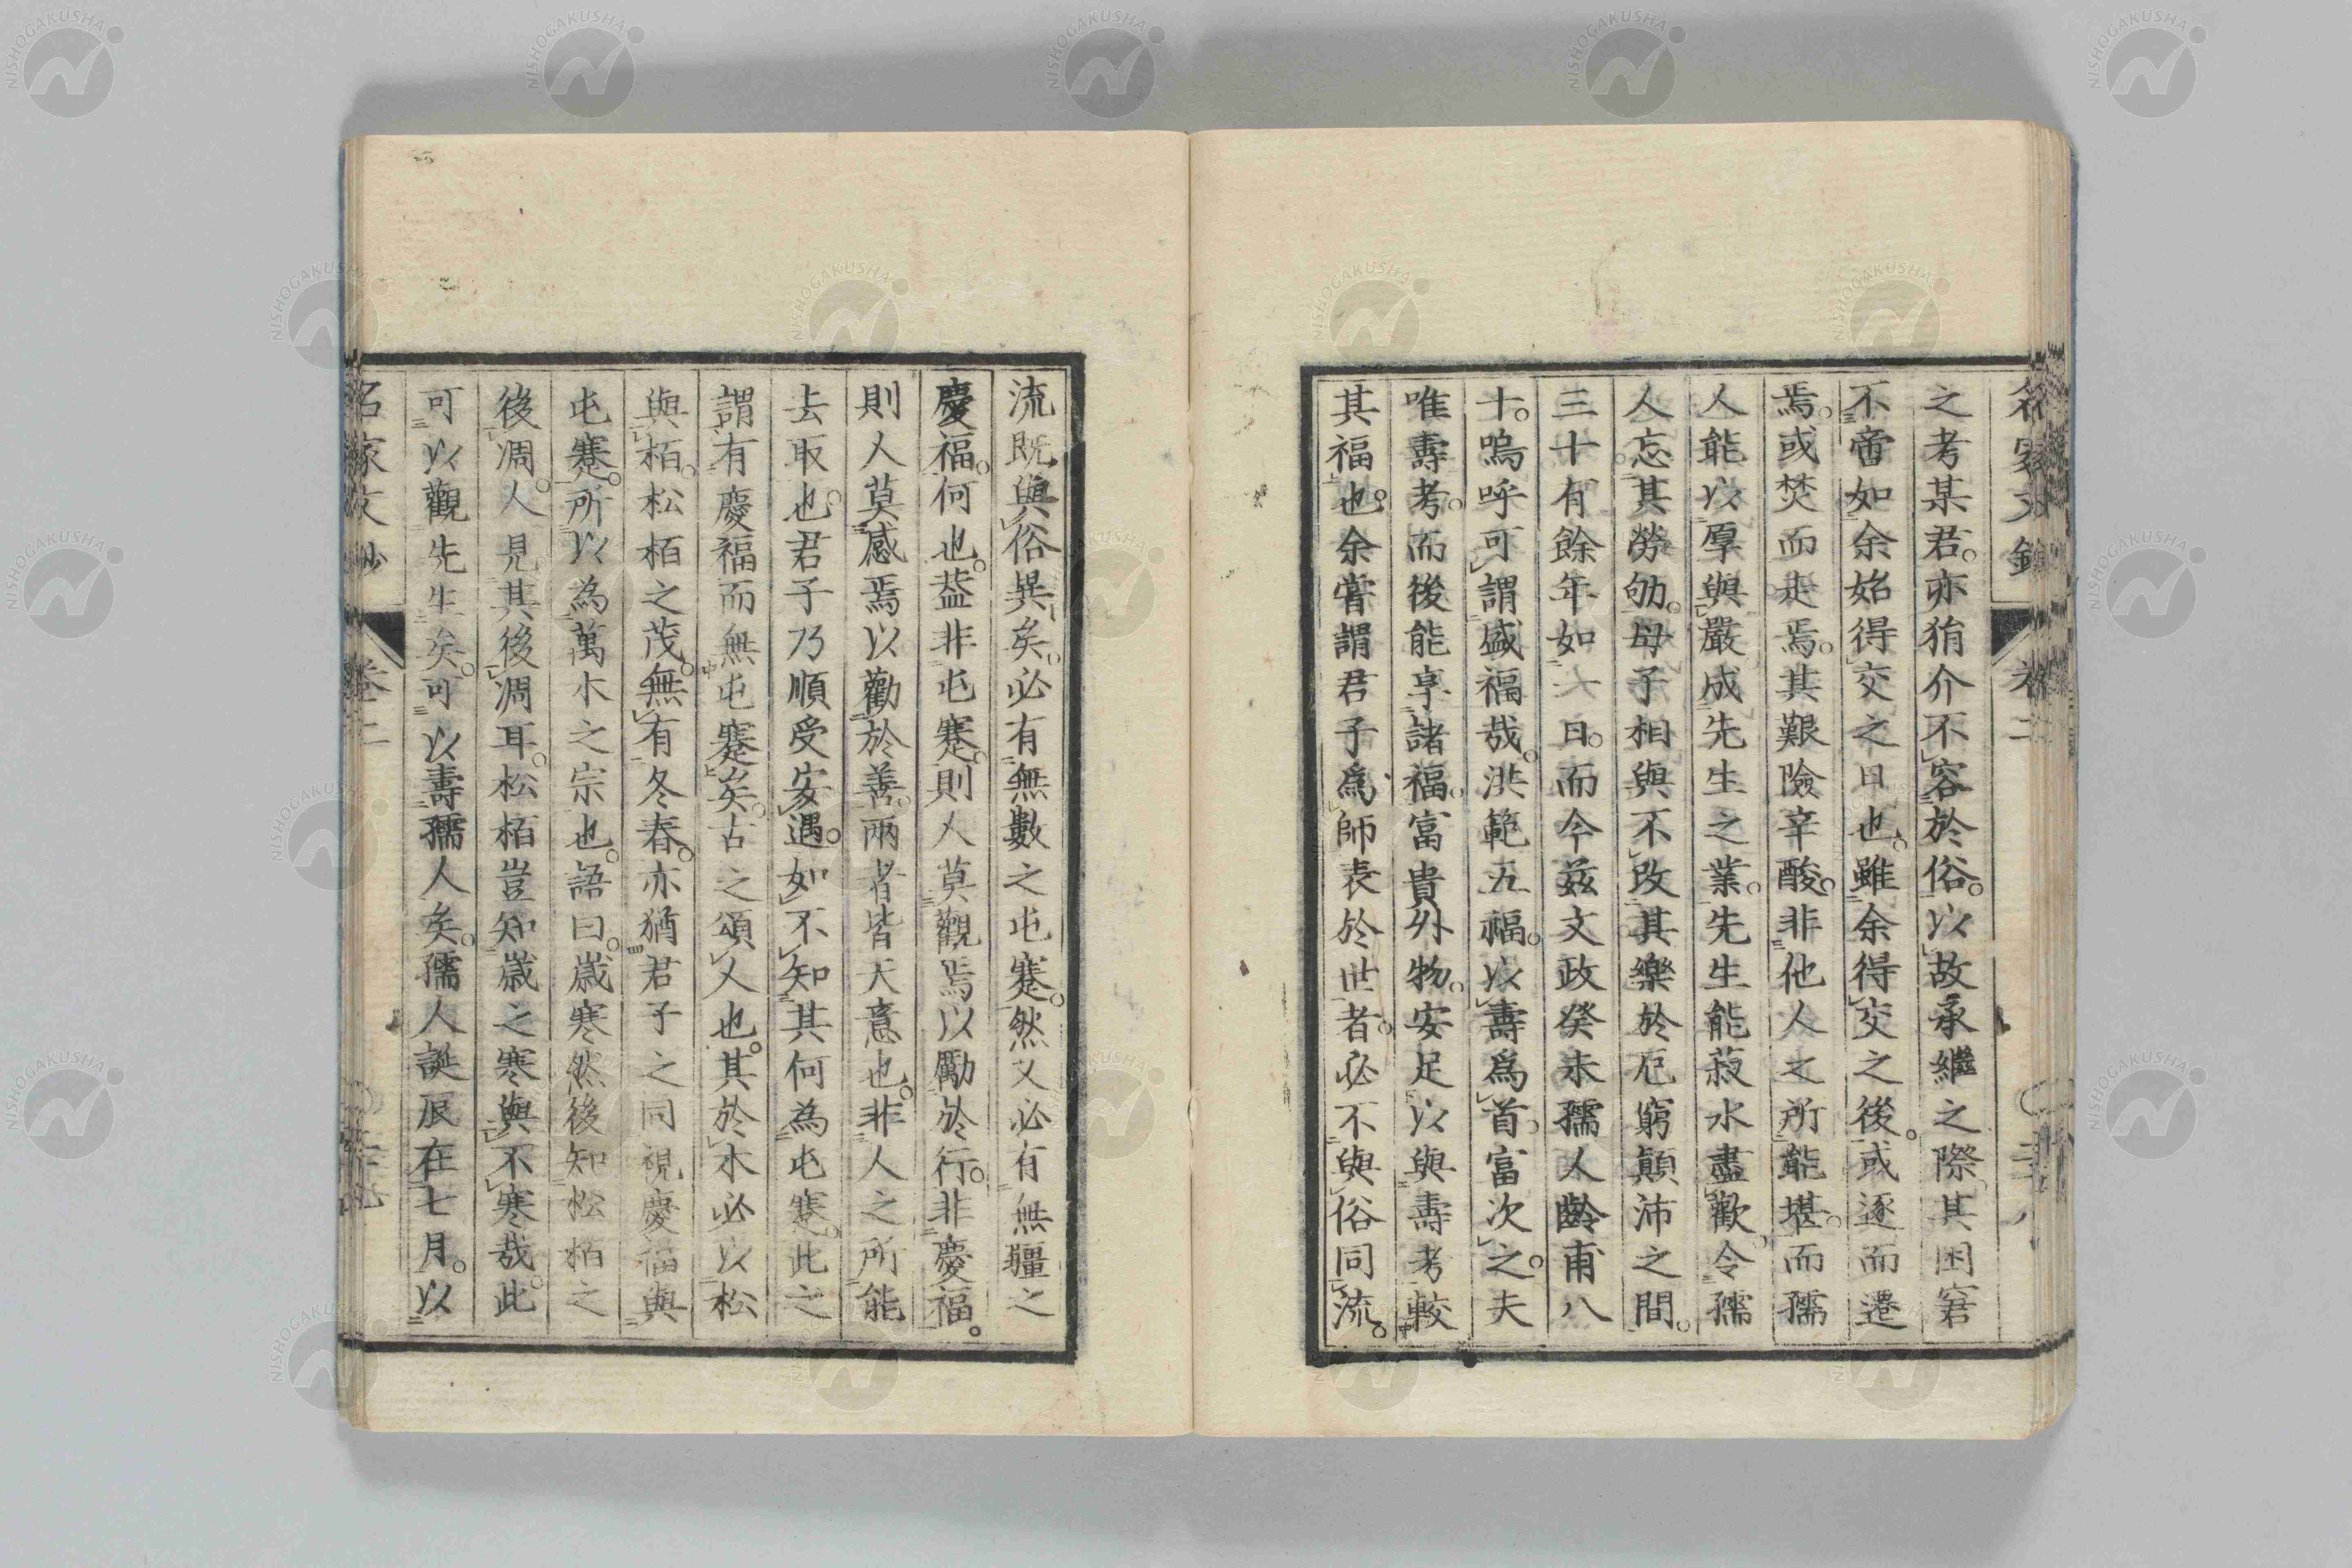 之考某君。亦狷介不容於俗。以故承繼之際其困窘
不啻如余始得交之日也。雖余得交之後。或逐而遷
焉。或焚而走焉。其艱險辛酸。非他人之所能堪。而孺
人能以厚與嚴成先生之業。先生能菽水盡歡。令孺
人忘其勞劬。母子相與不改其樂於厄窮顛沛之間。
三十有餘年如一日。而今茲文政癸未孺人齡甫八
十。嗚呼可謂盛福哉。洪範五福。以壽爲首。富次之。夫
唯壽考。而後能享諸福。富貴外物。安足以與壽考較
其福也。余嘗謂君子爲師表於世者。必不與俗同流。
流既與俗異矣。必有無數之屯蹇。然又必有無疆之
慶福。何也。蓋非屯蹇。則人莫觀焉以勵於行。非慶福。
則人莫感焉以勸於善。兩者皆天意也。非人之所能
去取也。君子乃順受安遇。如不知其何為屯蹇。此之
謂有慶福而無屯蹇矣。古之頌人也。其於木必以松
與栢。松栢之茂。無有冬春。亦猶君子之同視慶福與
屯蹇。所以為萬木之宗也。語曰。歲寒然後知松栢之
後凋。人見其後凋耳。松栢豈知歲之寒與不寒哉。此
可以觀先生矣。可以壽孺人矣。孺人誕辰在七月。以
名家文抄 卷二
NISHOGAKUSHA